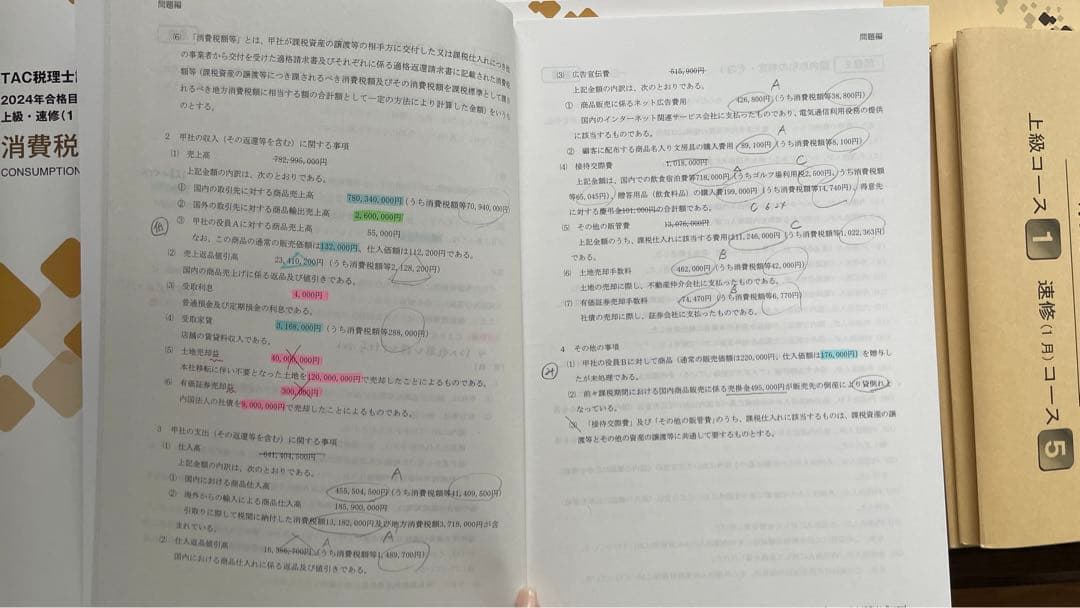 TAC税理士
2024年合格目
上級・速修(1
消費税
CONSUMPTION
問題編
(6) 「消費税額等」とは、甲社が課税資産の譲渡等の相手方に交付した又は課税仕入れにつき他
の事業者から交付を受けた適格請求書及びそれぞれに係る適格返還請求書に記載された消費税
額等(課税資産の譲渡等につき課されるべき消費税額及びその消費税額を課税標準として課さ
れるべき地方消費税額に相当する額の合計額として一定の方法により計算した金額)をいうも
のとする。
2 甲社の収入(その返還等を含む)に関する事項
(1) 売上高 782,995,000円
上記金額の内訳は、次のとおりである。
① 国内の取引先に対する商品売上高 780,340,000円(うち消費税額等70,940,000円)
② 国外の取引先に対する商品輸出売上高 2,600,000円
③ 甲社の役員Aに対する商品売上高 55,000円
なお、この商品の通常の販売価額は132,000円、仕入価額は112,200円である。
(2) 売上返品値引高 23,410,200円(うち消費税額等2,128,200円)
国内の商品売上げに係る返品及び値引きである。
(3) 受取利息 4,000円
普通預金及び定期預金の利息である。
(4) 受取家賃 3,168,000円(うち消費税額等288,000円)
店舗の賃貸料収入である。
(5) 土地売却益 40,000,000円
本社移転に伴い不要となった土地を120,000,000円で売却したことによるものである。
(6) 有価証券売却益 300,000円
内国法人の社債を9,000,000円で売却したことによるものである。
3 甲社の支出(その返還等を含む)に関する事項
(1) 仕入高 641,404,500円
上記金額の内訳は、次のとおりである。
① 国内における商品仕入高 455,504,500円(うち消費税額等41,409,500円)
A
② 海外からの輸入による商品仕入高 185,900,000円
引取りに際して税関に納付した消費税額13,182,000円及び地方消費税額3,718,000円が含
まれている。
A
(2) 仕入返品値引高 16,386,700円(うち消費税額等1,489,700円)
A
国内における商品仕入れに係る返品及び値引きである。
問題編
(3) 広告宣伝費 515,900円
上記金額の内訳は、次のとおりである。
A
① 商品販売に係るネット広告費用 426,800円(うち消費税額等38,800円)
国内のインターネット関連サービス会社に支払ったものであり、電気通信利用役務の提供
に該当するものである。
A
② 顧客に配布する商品名入り文房具の購入費用 89,100円(うち消費税額等8,100円)
(4) 接待交際費 1,018,000円
C
上記金額は、国内での飲食宿泊費等718,000円(うちゴルフ場利用税2,500円、うち消費税額
等65,045円)、贈答用品(飲食料品)の購入費199,000円(うち消費税額等14,740円)、得意先
に対する慶弔金101,000円の合計額である。
C 6.24
(5) その他の販管費 13,076,000円
C
上記金額のうち、課税仕入れに該当する費用は11,246,000円(うち消費税額等1,022,363円)
である。
B
(6) 土地売却手数料 462,000円(うち消費税額等42,000円)
土地の売却に際し、不動産仲介会社に支払ったものである。
B
(7) 有価証券売却手数料 74,470円(うち消費税額等6,770円)
社債の売却に際し、証券会社に支払ったものである。
4 その他の事項
(1) 甲社の役員Bに対して商品(通常の販売価額は220,000円、仕入価額は176,000円)を贈与し
たが未処理である。
(2) 前々課税期間における国内商品販売に係る売掛金495,000円が販売先の倒産により貸倒れと
なっている。
(3) 「接待交際費」及び「その他の販管費」のうち、課税仕入れに該当するものは、課税資産の譲
渡等とその他の資産の譲渡等に共通して要するものとする。
上級コース 1 速修(1月)コース 5